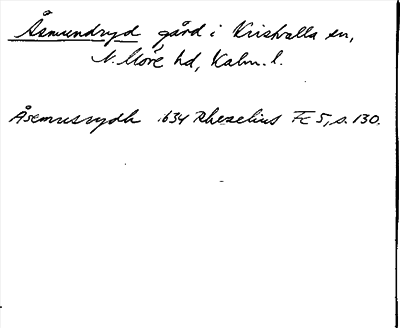 Åsmundryd gård i Kristvalla sn,
N. Möre hd, Kalm. l.
Åsemusrydh 1634 Rhezelius Fc 5, s. 130.